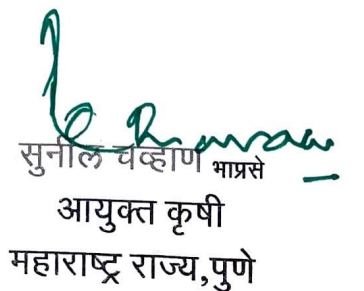 सुनील चव्हाण भाप्रसे
आयुक्त कृषी
महाराष्ट्र राज्य,पुणे